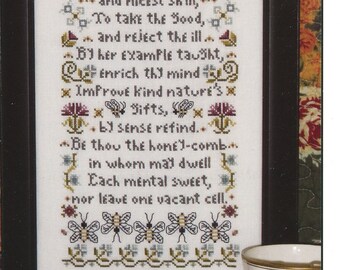 and nicest skill,
To take the good,
and reject the ill
By her example taught,
enrich thy mind
Improve kind nature's
gifts,
by sense refind.
Be thou the honey-comb
in whom may dwell
Each mental sweet,
nor leave one vacant cell.